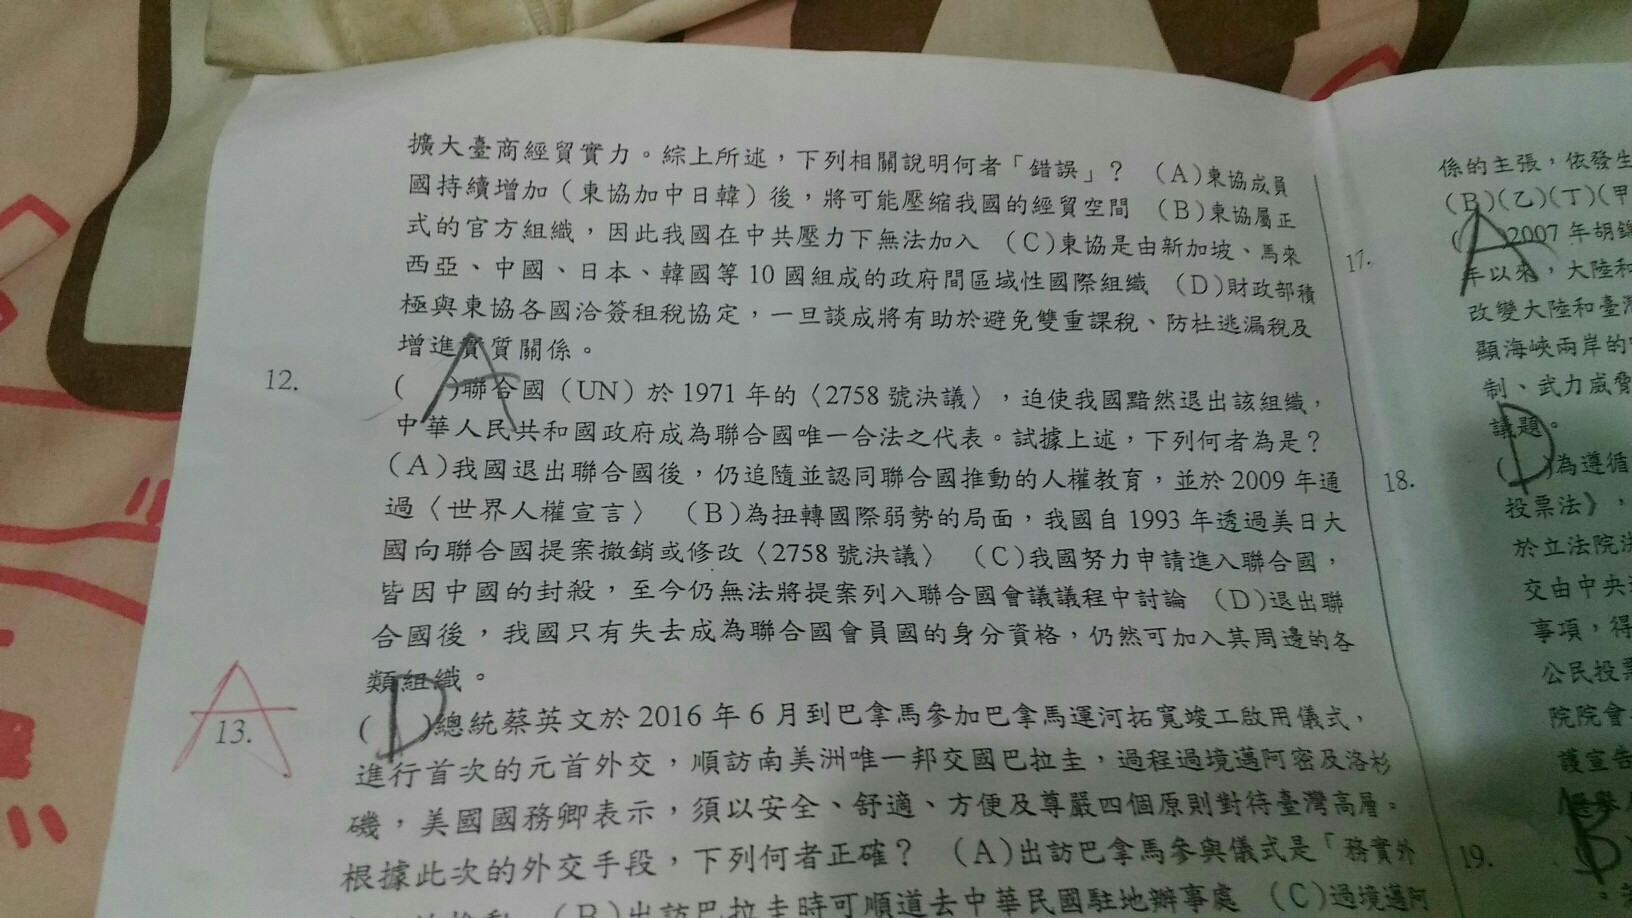 擴大臺商經貿實力。綜上所述，下列相關說明何者「錯誤」？ (A)東協成員
國持續增加（東協加中日韓）後，將可能壓縮我國的經貿空間 (B)東協屬正
式的官方組織，因此我國在中共壓力下無法加入 (C)東協是由新加坡、馬來
西亞、中國、日本、韓國等10國組成的政府間區域性國際組織 (D)財政部積
極與東協各國洽簽租稅協定，一旦談成將有助於避免雙重課稅、防杜逃漏稅及
增進實質關係。
12. ( A )聯合國（UN）於1971年的〈2758號決議〉，迫使我國黯然退出該組織，
中華人民共和國政府成為聯合國唯一合法之代表。試據上述，下列何者為是？
(A)我國退出聯合國後，仍追隨並認同聯合國推動的人權教育，並於2009年通
過〈世界人權宣言〉 (B)為扭轉國際弱勢的局面，我國自1993年透過美日大
國向聯合國提案撤銷或修改〈2758號決議〉 (C)我國努力申請進入聯合國，
皆因中國的封殺，至今仍無法將提案列入聯合國會議議程中討論 (D)退出聯
合國後，我國只有失去成為聯合國會員國的身分資格，仍然可加入其周邊的各
類組織。
A
13. ( D )總統蔡英文於2016年6月到巴拿馬參加巴拿馬運河拓寬竣工啟用儀式，
進行首次的元首外交，順訪南美洲唯一邦交國巴拉圭，過程過境邁阿密及洛杉
磯，美國國務卿表示，須以安全、舒適、方便及尊嚴四個原則對待臺灣高層。
根據此次的外交手段，下列何者正確？ (A)出訪巴拿馬參與儀式是「務實外
(B)出訪巴拉圭時可順道去中華民國駐地辦事處 (C)過境邁阿
係的主張，依發生
(B)(乙)(丁)(甲
17. ( A )2007年胡錦
年以來，大陸和
改變大陸和臺灣
顯海峽兩岸的
制、武力威脅
議題。
18. ( D )為遵循
投票法》，
於立法院
交由中央
事項，得
公民投票
院院會
護宣告
選舉
19. B